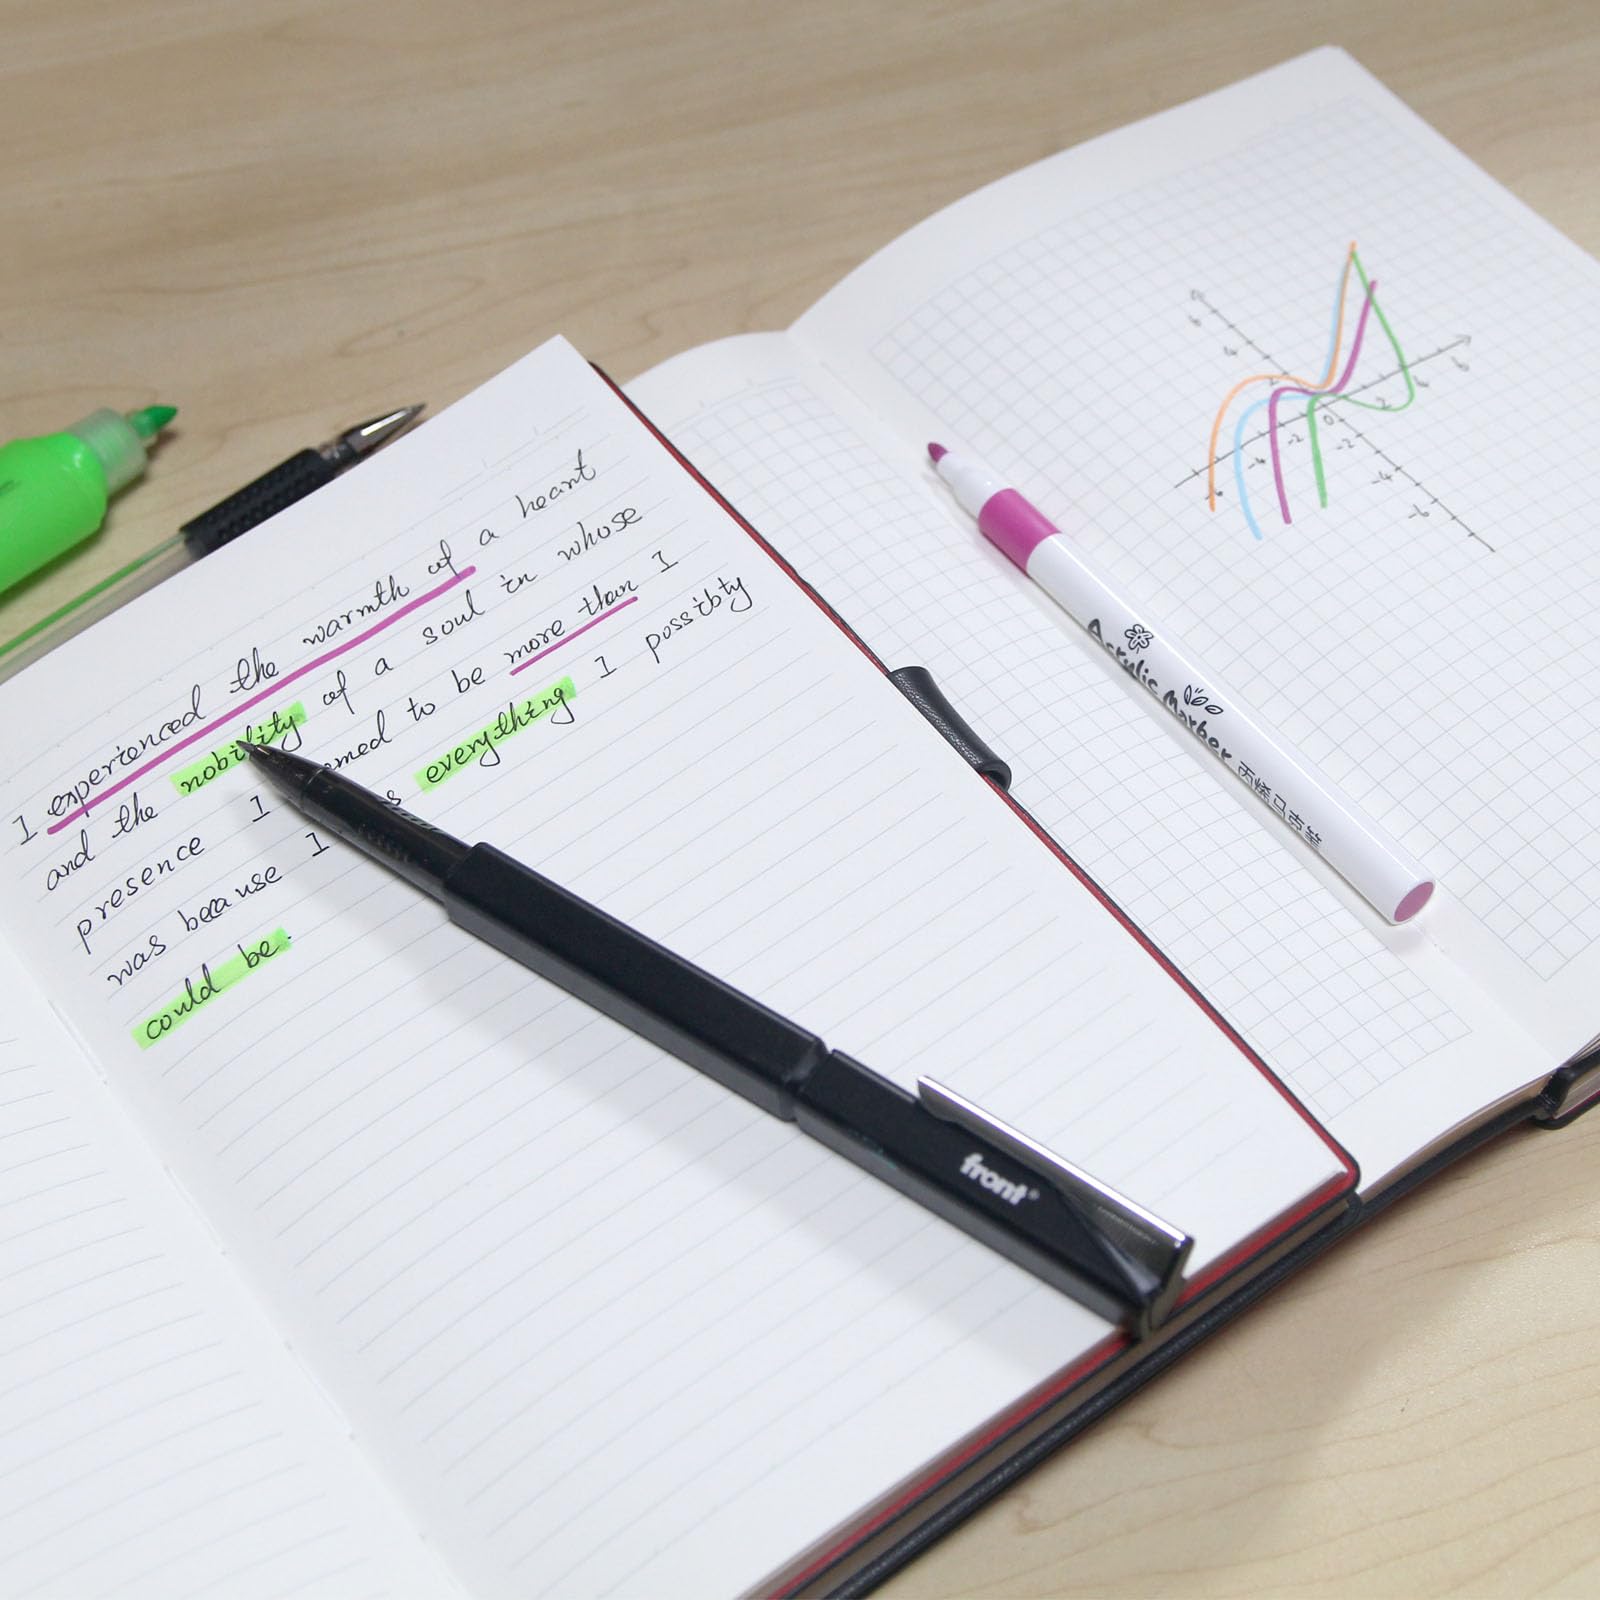 I experienced the warmth of a heart
and the nobility of a soul in whose
presence I emed to be more than I
was because I s everything I possibty
could be.
front®
Acrylic Marker 丙烯马克笔
6
4
2
0
2
6
6
-2
-4
-6
-2
-4
-6